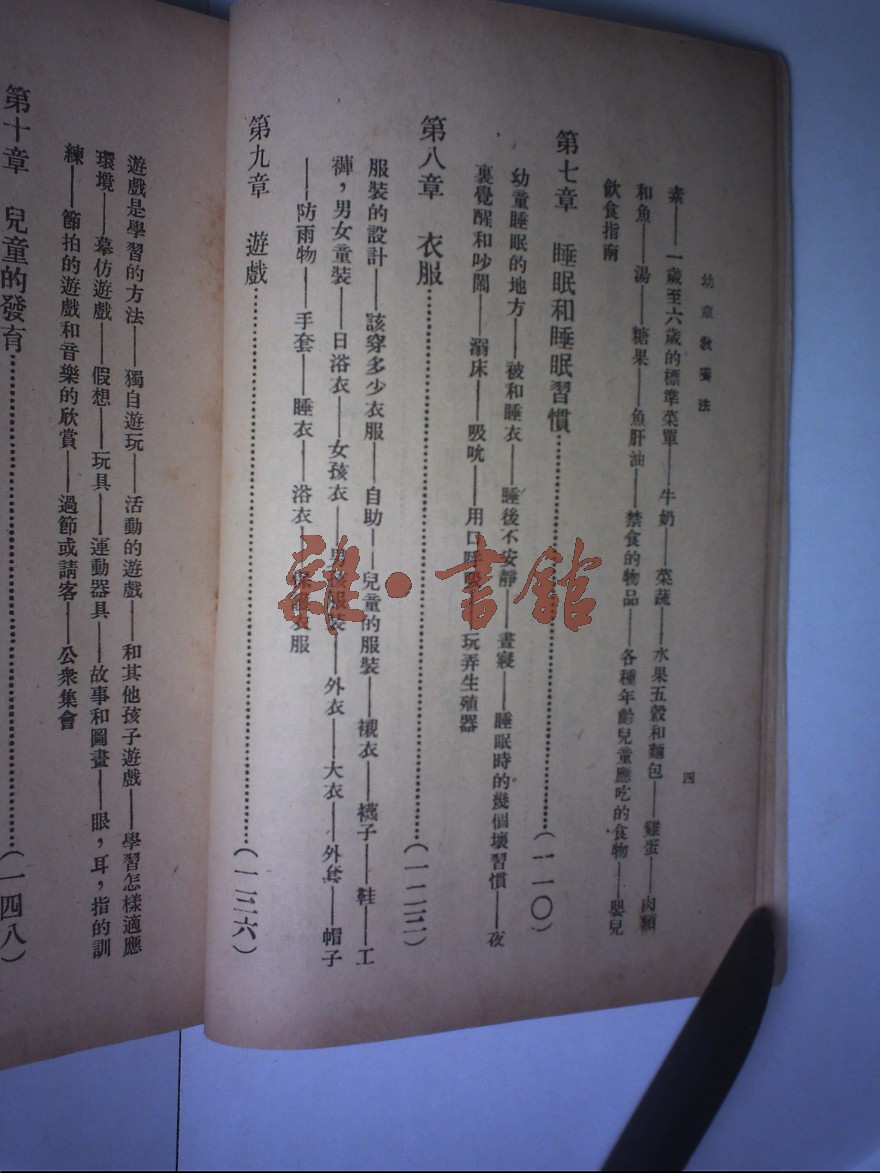 幼童教養法
四
素——一歲至六歲的標準菜單——牛奶——菜蔬——水果五穀和麵包——雞蛋——肉類
和魚——湯——糖果——魚肝油——禁食的物品——各種年齡兒童應吃的食物——嬰兒
飲食指南
第七章 睡眠和睡眠習慣……(一一〇)
幼童睡眠的地方——被和睡衣——睡後不安靜——晝寢——睡眠時的幾個壞習慣——夜
裏覺醒和吵鬧——溺床——吸吮——用口呼吸——玩弄生殖器
第八章 衣服……(一二三)
服裝的設計——該穿多少衣服——自助——兒童的服裝——襯衣——襪子——鞋——工
褲，男女童裝——日浴衣——女孩衣——男孩服裝——外衣——大衣——外套——帽子
——防雨物——手套——睡衣——浴衣——保護衣服
第九章 遊戲……(一三六)
遊戲是學習的方法——獨自遊玩——活動的遊戲——和其他孩子遊戲——學習怎樣適應
環境——摹仿遊戲——假想——玩具——運動器具——故事和圖畫——眼，耳，指的訓
練——節拍的遊戲和音樂的欣賞——過節或請客——公衆集會
第十章 兒童的發育……(一四八)
雜·書館